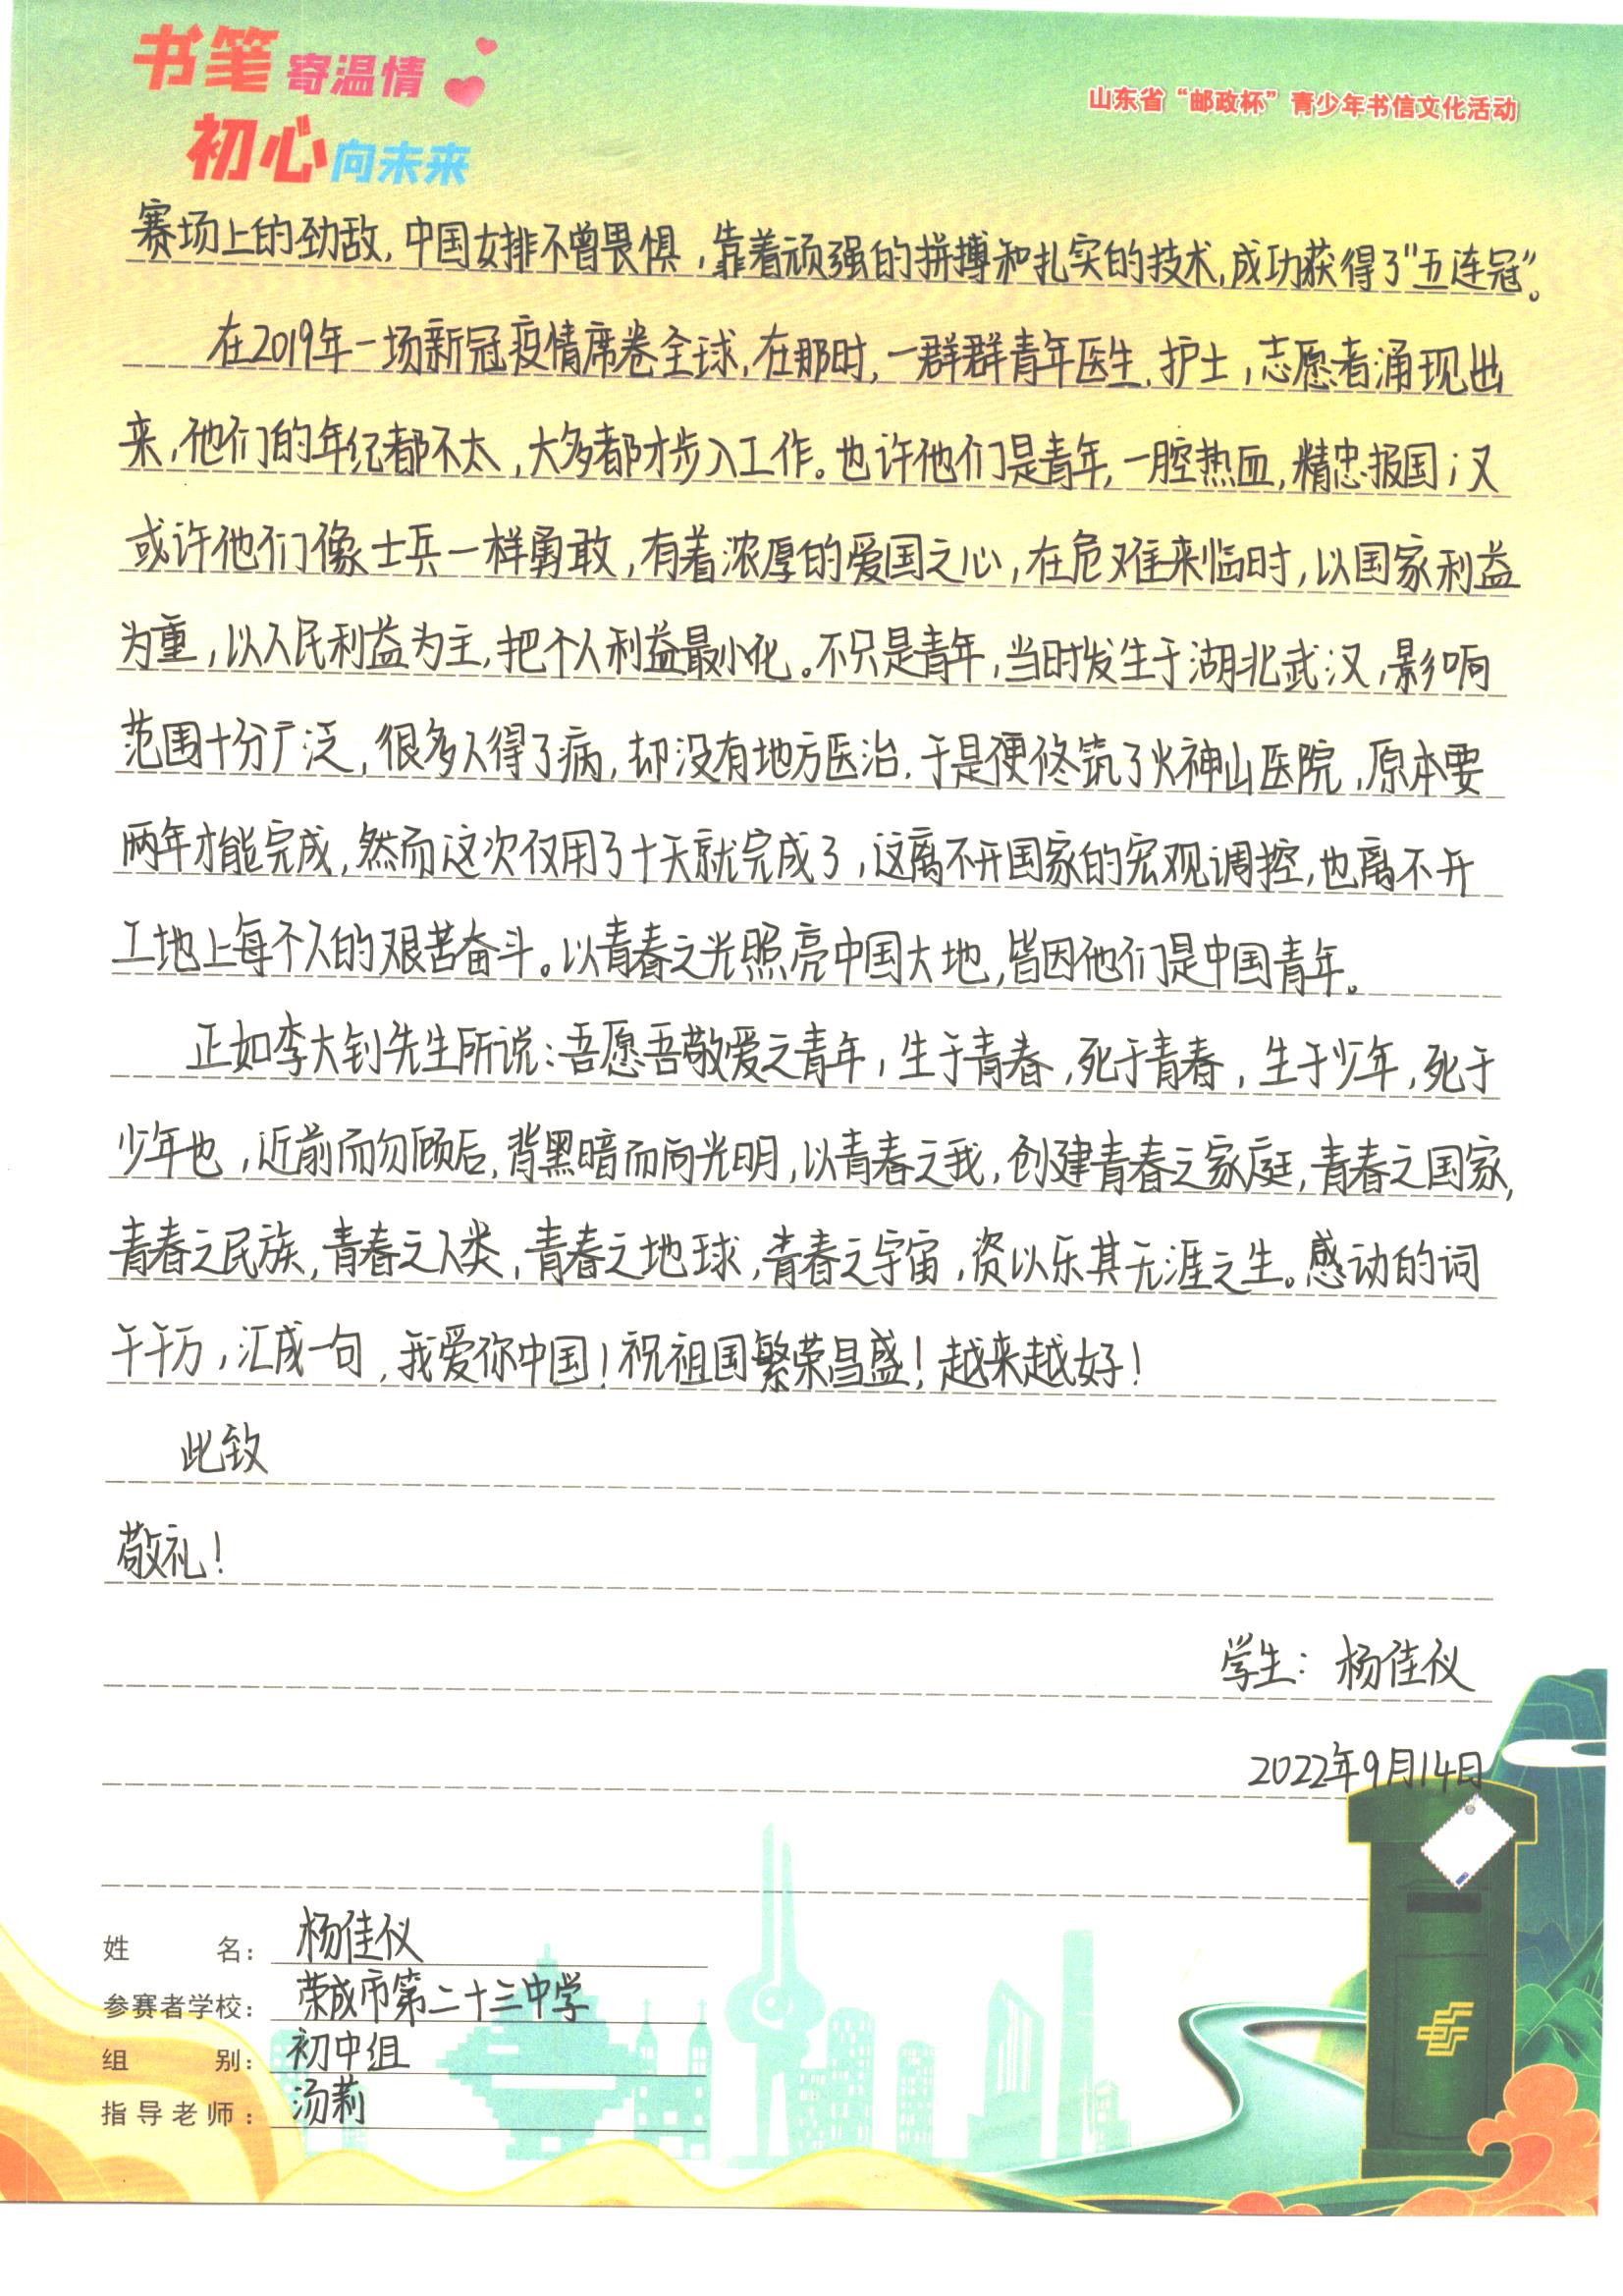 书笔寄温情
初心向未来
山东省“邮政杯”青少年书信文化活动
赛场上的劲敌,中国女排不曾畏惧,靠着顽强的拼搏和扎实的技术,成功获得了“五连冠”。
在2019年一场新冠疫情席卷全球,在那时,一群群青年医生、护士,志愿者涌现出
来,他们的年纪都不太,大多都才步入工作。也许他们是青年,一腔热血,精忠报国;又
或许他们像士兵一样勇敢,有着浓厚的爱国之心,在危难来临时,以国家利益
为重,以人民利益为主,把个人利益最小化。不只是青年,当时发生于湖北武汉,影响
范围十分广泛,很多人得了病,却没有地方医治.于是便修筑了火神山医院,原本要
两年才能完成,然而这次仅用了十天就完成了,这离不开国家的宏观调控,也离不开
工地上每个人的艰苦奋斗。以青春之光照亮中国大地,皆因他们是中国青年。
正如李大钊先生所说:吾愿吾敬爱之青年,生于青春,死于青春,生于少年,死于
少年也,近前而勿顾后,背黑暗而向光明,以青春之我,创建青春之家庭,青春之国家,
青春之民族,青春之人类,青春之地球,青春之宇宙,资以乐其无涯之生。感动的词
千千万,汇成一句,我爱你中国!祝祖国繁荣昌盛!越来越好!
此致
敬礼!
学生:杨佳仪
2022年9月14日
姓名:杨佳仪
参赛者学校:荣成市第二十三中学
组别:初中组
指导老师:汤莉